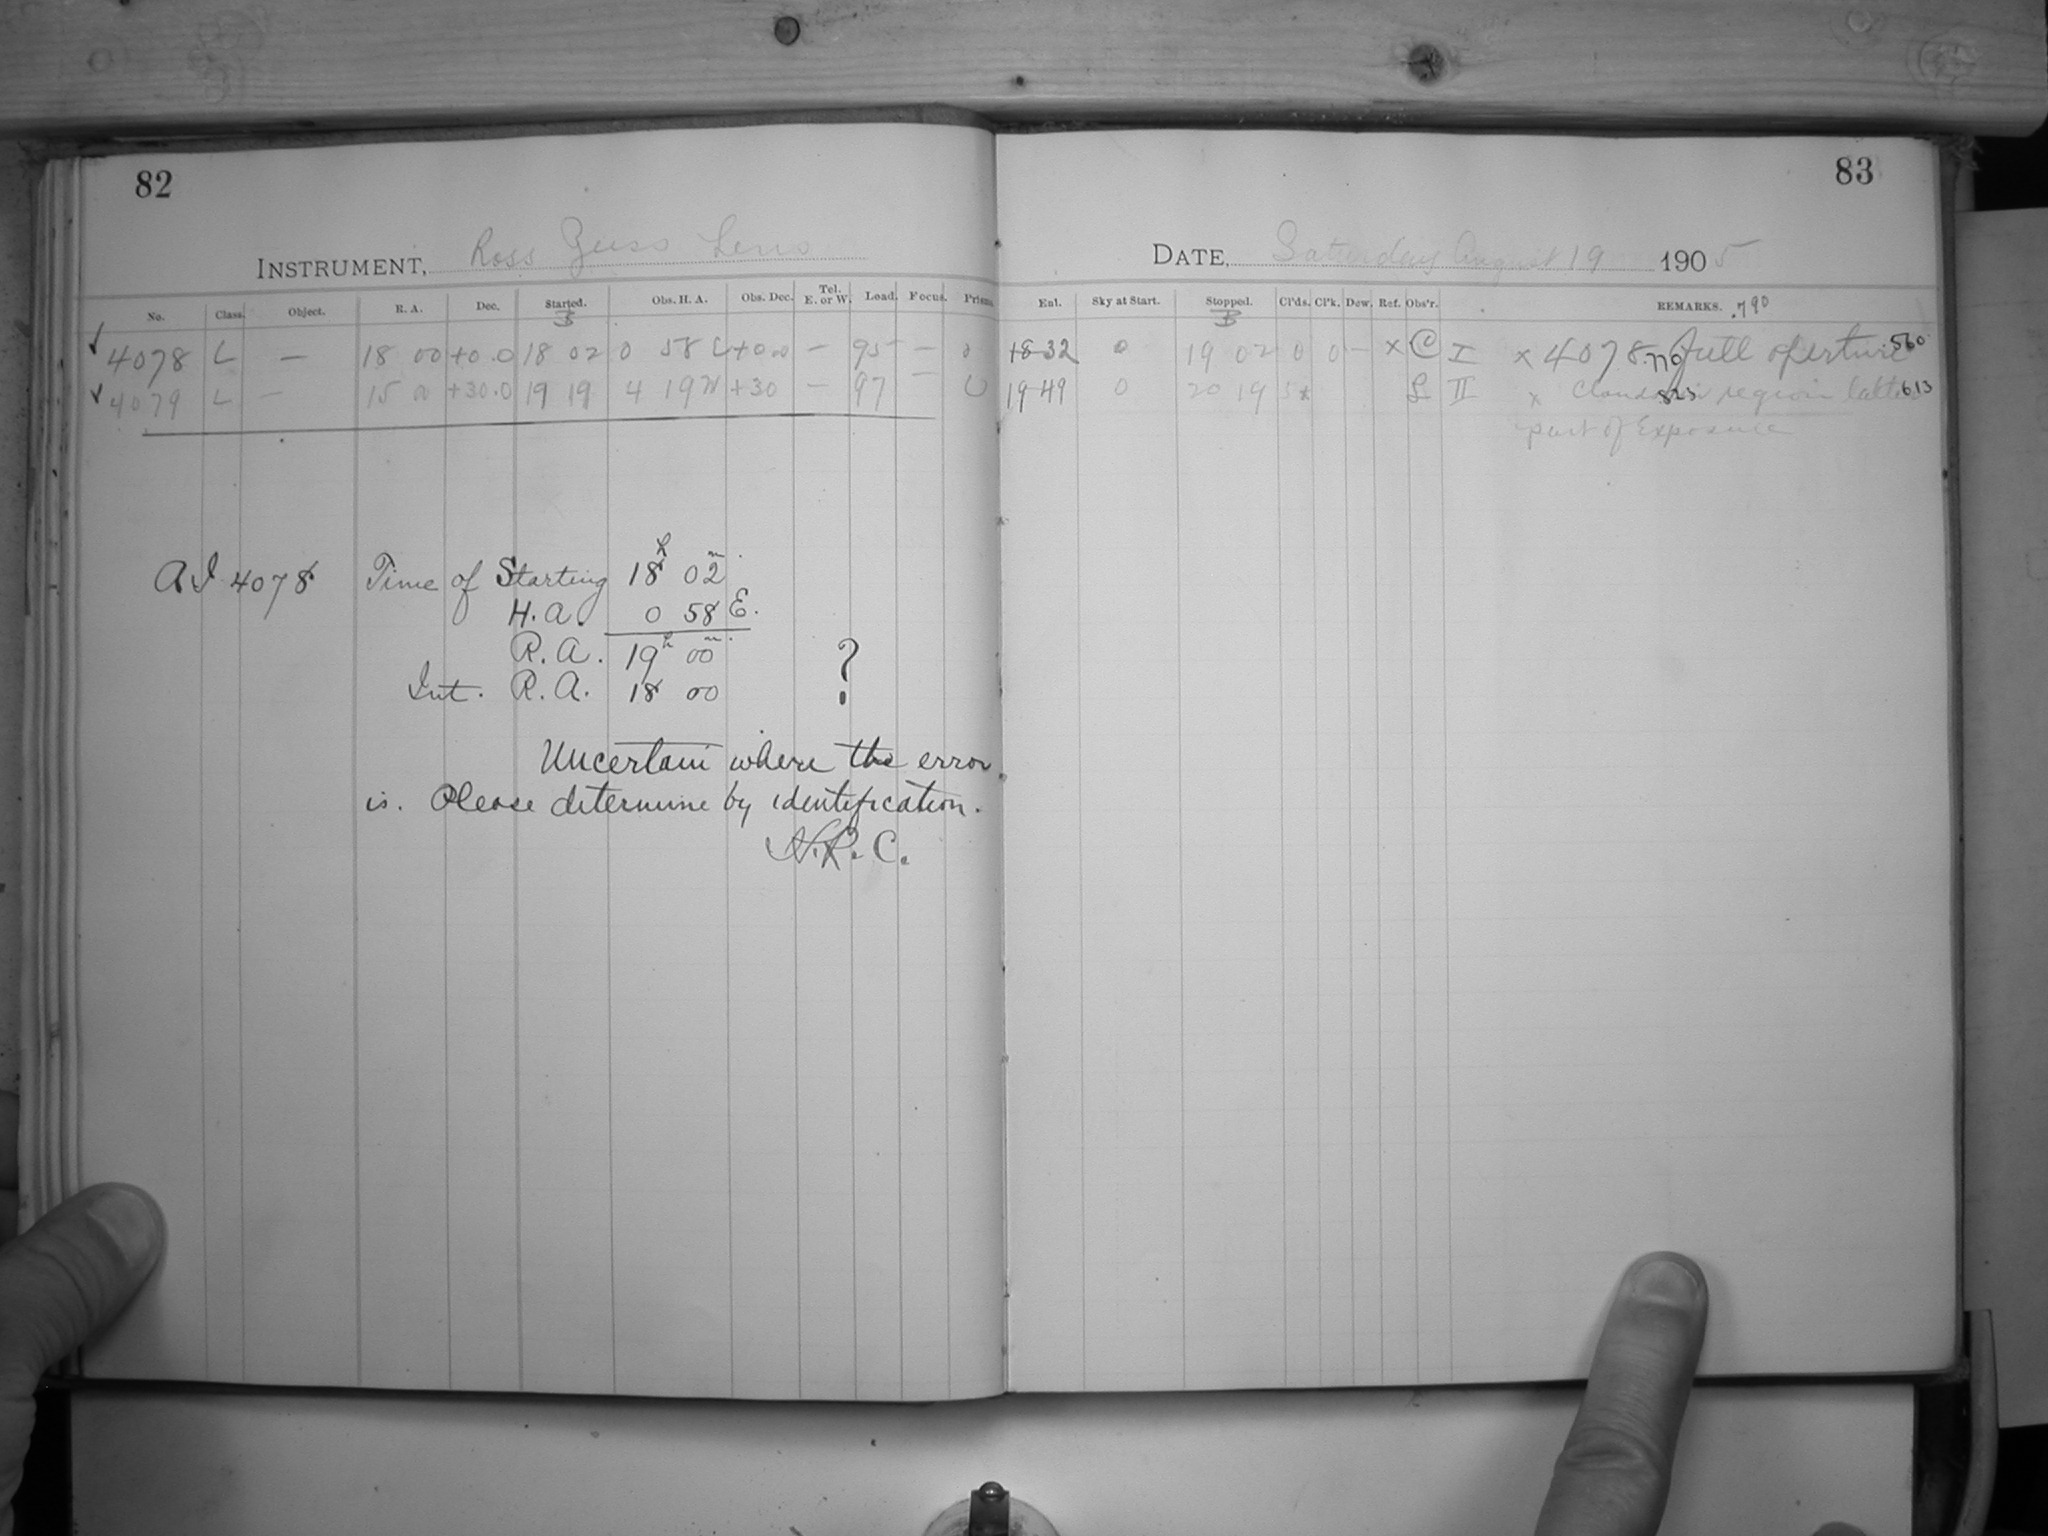 82
83
INSTRUMENT, Ross Zeiss Lens
DATE, Saturday August 19 1905
No. Class. Object. R. A. Dec. Started. Obs. H. A. Obs. Dec. Tel. E. or W. Load. Focus. Prism. Ent. Sky at Start. Stopped. Cl'ds. Cl'k. Dew. Ref. Obs'r. REMARKS. .790
B B
4078 L — 18 00 +0.0 18 02 0 58 +0.0 — 95 — 0 18 32 0 19 02 0 0 — x C I x 4078 .770 full aperture .560
4079 L — 15 00 +30.0 19 19 4 19 W +30 — 97 — 19 49 0 20 19 5x II x Clouds in region latter .613
part of Exposure
A I 4078 Time of Starting 18h 02m
H.A. 0 58 E.
R.A. 19h 00m
Int. R.A. 18 00 ?
Uncertain where the error
is. Please determine by identification.
C.